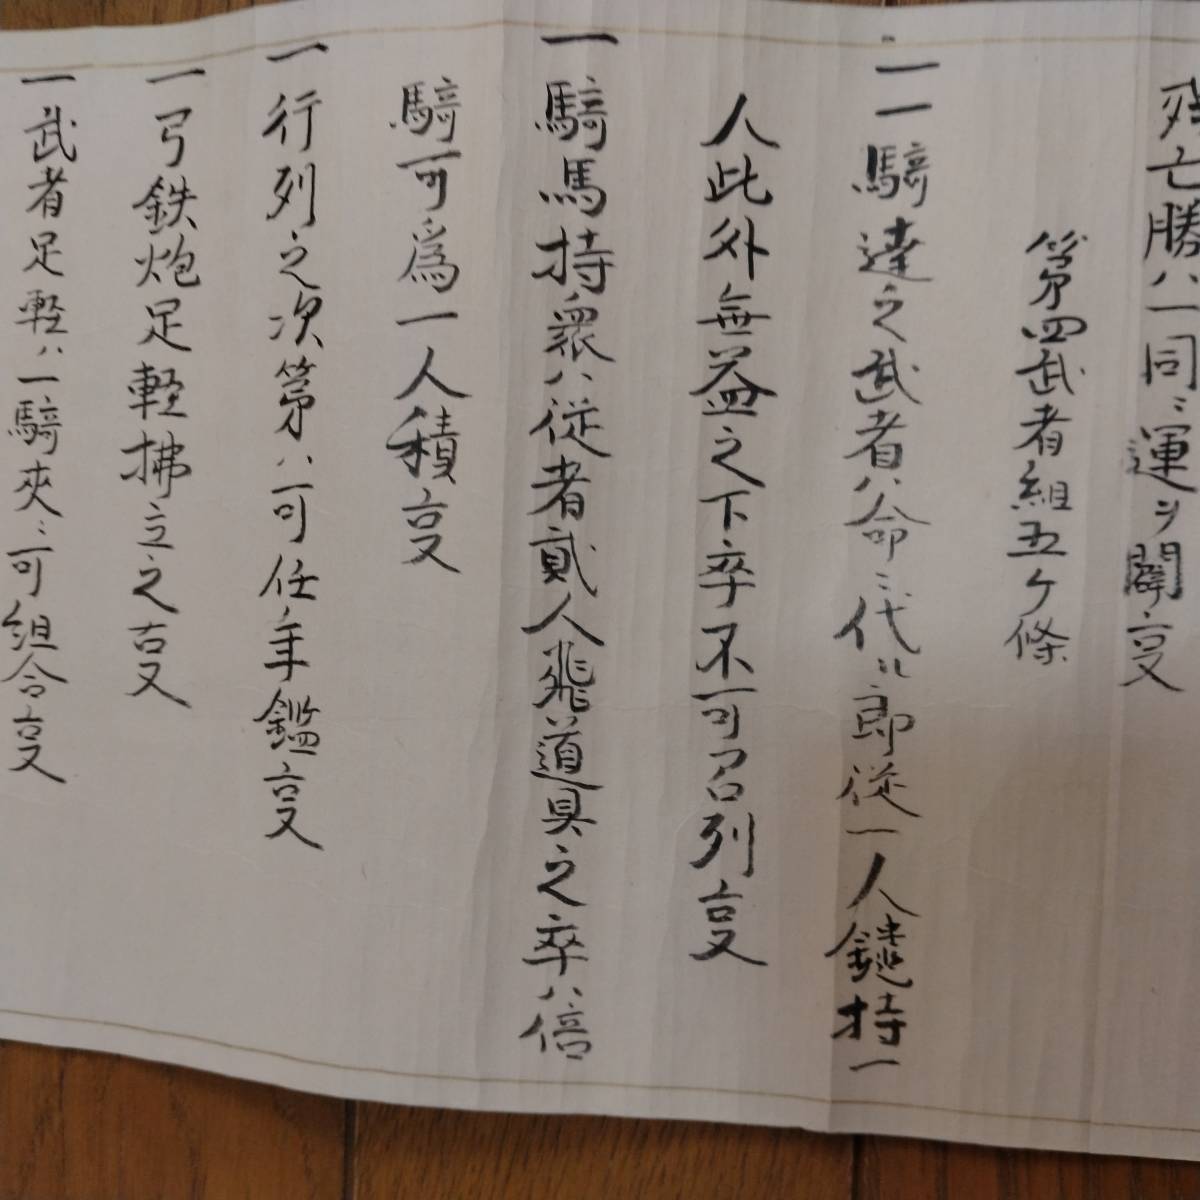 死亡勝ハ一同ニ運ヲ闢叓
第四武者組五ケ條
一一騎達之武者ハ命ニ代ル郎従一人鑓持一
人此外無益之下卒不可召列叓
一騎馬持衆ハ従者貳人飛道具之卒ハ倍
騎可為一人積叓
一行列之次第ハ可任年鑑叓
一弓鉄炮足軽拂立之叓
一武者足軽ハ一騎夾ニ可組合叓